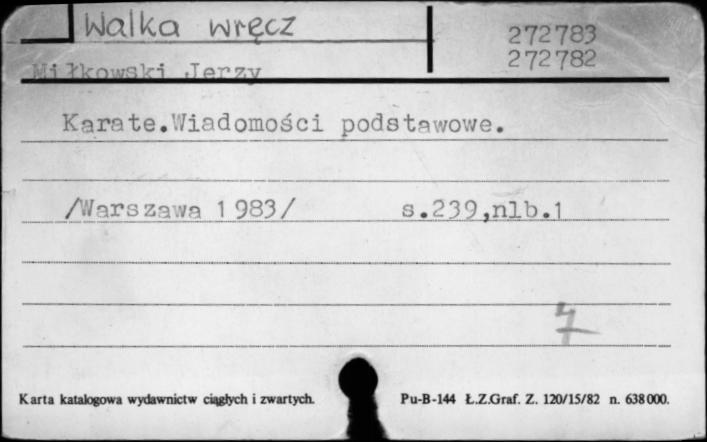 Walka wręcz
272783
272782
Miłkowski Jerzy
Karate.Wiadomości podstawowe.
/Warszawa 1983/ s.239,nlb.1
4
Karta katalogowa wydawnictw ciągłych i zwartych. Pu-B-144 Ł.Z.Graf. Z. 120/15/82 n. 638000.